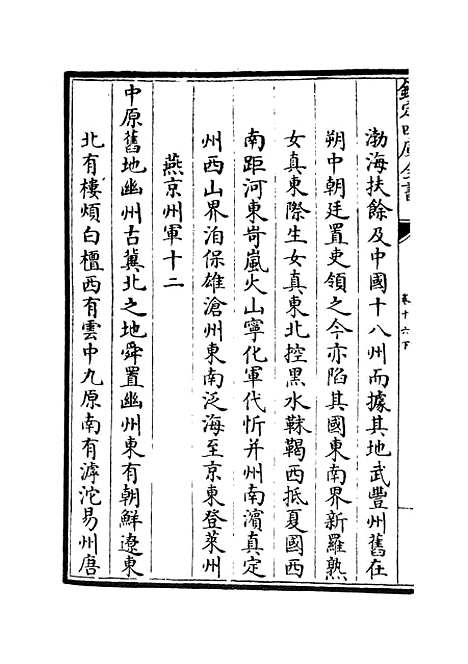 欽定四庫全書
卷十六下
渤海扶餘及中國十八州而據其地武豐州舊在
朔中朝廷置吏領之今亦陷其國東南界新羅熟
女真東際生女真東北控黑水靺鞨西抵夏國西
南距河東岢嵐火山寧化軍代忻并州南濵真定
州西山界洎保雄滄州東南泛海至京東登萊州
燕京州軍十二
中原舊地幽州古冀北之地舜置幽州東有朝鮮遼東
北有樓煩白檀西有雲中九原南有滹沱易州唐